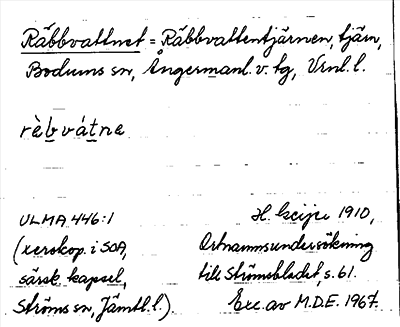 Räbbvattnet = Räbbvattentjärnen, tjärn,
Bodums sn, Ångermanl. v. tg, Vrnl. l.
rèbvátne
ULMA 446:1
(xerokop. i SOA,
särsk. kapsel,
Ströms sn, Jämtl. l.).
H. Geijer 1910,
Ortnamnsundersökning
till Strömsbladet, s. 61.
Exc. av M.D.E. 1967.